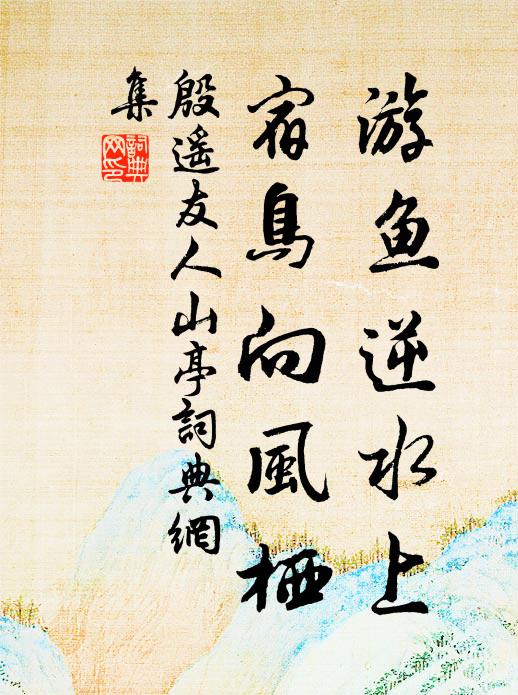 游鱼逆水上
宿鳥向風栖
殷遙友人山亭詞典網
集
詞典
网印